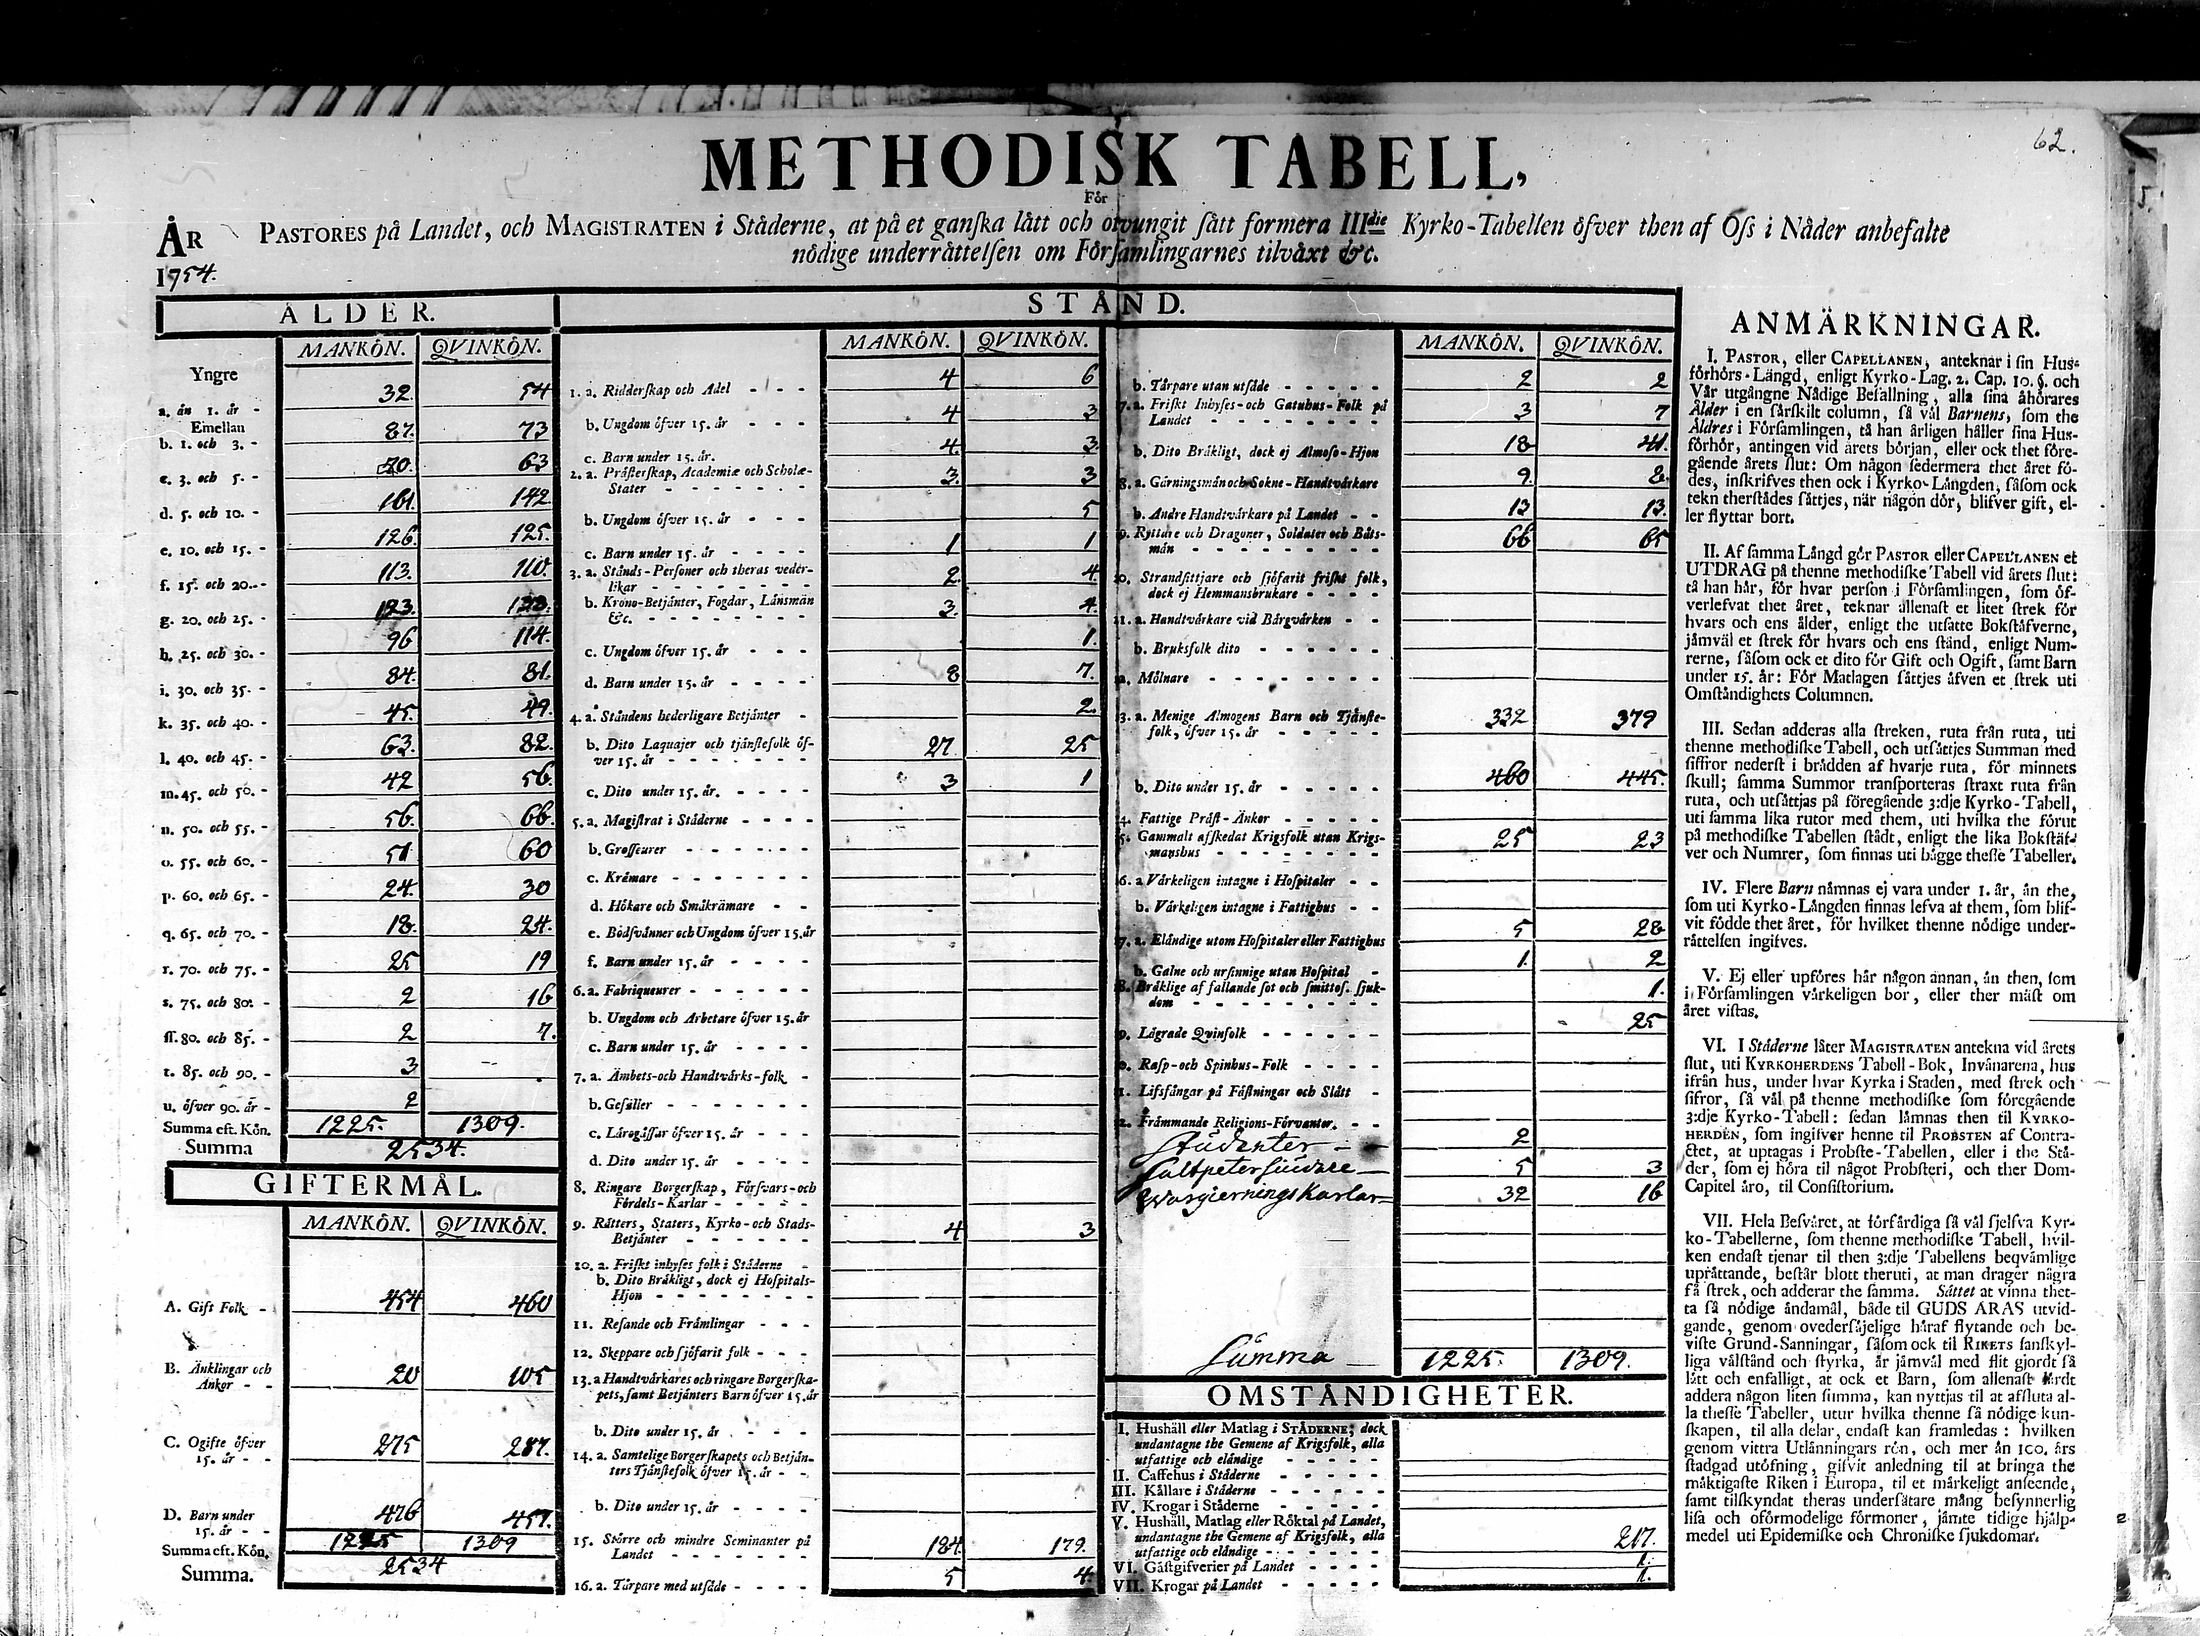 62.
METHODISK TABELL,
För
ÅR PASTORES på Landet, och MAGISTRATEN i Städerne, at på et ganſka lätt och otvungit ſätt formera IIIdie Kyrko-Tabellen öfver then af Oſs i Nåder anbefalte
nödige underrättelſen om Förſamlingarnes tilväxt &c.
1754.
ÅLDER.
MANKÖN. QVINKÖN.
Yngre
a. än 1. år - 32. 54
Emellan
b. 1. och 3. - 87. 73
c. 3. och 5. - 70. 63
d. 5. och 10. - 161. 142
e. 10. och 15. - 126. 125.
f. 15. och 20. - 113. 110.
g. 20. och 25. - 123.
h. 25. och 30. - 96 114.
i. 30. och 35. - 84. 81.
k. 35. och 40. - 45. 49.
l. 40. och 45. - 63. 82.
m. 45. och 50. - 42 56.
n. 50. och 55. - 56. 66.
o. 55. och 60. - 51 60
p. 60. och 65. - 24. 30
q. 65. och 70. - 18. 24.
r. 70. och 75. - 25 19
s. 75. och 80. - 2 16
ſſ. 80. och 85. - 2 7.
t. 85. och 90. - 3 --
u. öfver 90. år - 2
Summa eft. Kön. 1225. 1309.
Summa 2534.
GIFTERMÅL.
MANKÖN. QVINKÖN.
A. Gift Folk - 454 460
B. Änklingar och
Änkor - - 20 105
C. Ogifte öfver
15. år - - 275 287.
D. Barn under
15. år - - 476 457.
Summa eft. Kön. 1225 1309
Summa. 2534
STÅND.
MANKÖN. QVINKÖN.
1. a. Ridderſkap och Adel - - - 4 6
b. Ungdom öfver 15. år - - - 4 3
c. Barn under 15. år. 4. 3
2. a. Präſterſkap, Academiæ och Scholæ-
Stater - - - - - - 3. 3
b. Ungdom öfver 15. år - - - 5
c. Barn under 15. år - - - - 1 1
3. a. Stånds-Perſoner och theras veder-
likar - - - - - - 2. 4.
b. Krono-Betjänter, Fogdar, Länsmän
&c. - - - - - - - 3. 4.
c. Ungdom öfver 15. år - - - 1.
d. Barn under 15. år - - - - 8 7.
4. a. Ståndens hederligare Betjänter - 2.
b. Dito Laquajer och tjänſtefolk öf-
ver 15. år - - - - - - - 27. 25
c. Dito under 15. år. - - - - 3 1
5. a. Magiſtrat i Städerne - - - -
b. Groſſeurer - - - - - -
c. Krämare - - - - - - -
d. Hökare och Småkrämare - -
e. Bodſvänner och Ungdom öfver 15. år
f. Barn under 15. år - - - -
6. a. Fabriqueurer - - - - - -
b. Ungdom och Arbetare öfver 15. år
c. Barn under 15. år - - - -
7. a. Ämbets-och Handtvärks-folk -
b. Geſäller - - - - - - -
c. Lärogåſſar öfver 15. år - - -
d. Dito under 15. år - - - -
8. Ringare Borgerſkap, Förſvars-och
Fördels-Karlar - - - - -
9. Rätters, Staters, Kyrko-och Stads-
Betjänter - - - - - - 4 3
10. a. Friſkt inhyſes folk i Städerne -
b. Dito Bräkligt, dock ej Hoſpitals-
Hjon - - - - - - - -
11. Reſande och Främlingar - - -
12. Skeppare och ſjöfarit folk - - -
13. a Handtvärkares och ringare Borgerſka-
pets, ſamt Betjänters Barn öfver 15. år
b. Dito under 15. år - - - -
14. a. Samtelige Borgerſkapets och Betjän-
ters Tjänſtefolk öfver 15. år - -
b. Dito under 15. år - - - -
15. Större och mindre Seminanter på
Landet - - - - - - - 184. 179.
16. a. Tärpare med utſäde - - - - 5 4.
MANKÖN. QVINKÖN.
b. Tärpare utan utſäde - - - - - 2 2
7. a. Friſkt Inhyſes-och Gatuhus-Folk på
Landet - - - - - - - 3 7
b. Dito Bräkligt, dock ej Almoſo-Hjon 18 41.
8. a. Gärningsmän och Sokne-Handtvärkare 9. 8.
b. Andre Handtvärkare på Landet - - 13 13.
9. Ryttare och Dragoner, Soldater och Båts-
män - - - - - - - - 66 65
10. Strandſittjare och ſjöfarit friſkt folk,
dock ej Hemmansbrukare - - - -
11. a. Handtvärkare vid Bärgvärken - -
b. Bruksfolk dito - - - - - -
Mölnare - - - - - - - -
3. a. Menige Almogens Barn och Tjänſte-
folk, öfver 15. år - - - - - 332 379
b. Dito under 15. år - - - - - 460 445.
4. Fattige Präſt-Änkor - - - -
5. Gammalt afſkedat Krigsfolk utan Krigs-
manshus - - - - - - - 25 23
6. a Värkeligen intagne i Hoſpitaler - -
b. Värkeligen intagne i Fattighus - -
7. a. Eländige utom Hoſpitaler eller Fattighus 5 28
b. Galne och urſinnige utan Hoſpital - 1. 2
8. Bräklige af fallande ſot och ſmittoſ. ſjuk-
dom - - - - - - - - 1.
9. Lägrade Qvinfolk - - - - - 25
0. Raſp-och Spinhus-Folk - - - -
1. Lifsfångar på Fäſtningar och Slått -
2. Främmande Religions-Förvanter. - -
Studenter - 2
Saltpetersiudare - 5 3
Wargierningskarlar - 32 16
Summa - 1225. 1309.
OMSTÄNDIGHETER.
I. Hushåll eller Matlag i STÄDERNE; dock
undantagne the Gemene af Krigsfolk, alla
utfattige och eländige - - - - -
II. Caffehus i Städerne - - - - -
III. Källare i Städerne - - - - -
IV. Krogar i Städerne - - - - -
V. Hushåll, Matlag eller Röktal på Landet,
undantagne the Gemene af Krigsfolk, alla
utfattige och eländige - - - - - 217.
VI. Gäſtgifverier på Landet - - - - 1.
VII. Krogar på Landet - - - - - 1.
ANMÄRKNINGAR.
I. PASTOR, eller CAPELLANEN, anteknar i ſin Hus-
förhörs-Längd, enligt Kyrko-Lag. 2. Cap. 10. §. och
Vår utgångne Nådige Befallning, alla ſina åhörares
Ålder i en ſärſkilt column, ſå väl Barnens, ſom the
Äldres i Förſamlingen, tå han årligen håller ſina Hus-
förhör, antingen vid årets början, eller ock thet före-
gående årets ſlut: Om någon ſedermera thet året fö-
des, inſkrifves then ock i Kyrko-Längden, ſåſom ock
tekn therſtädes ſättjes, när någon dör, blifver gift, el-
ler flyttar bort.
II. Af ſamma Längd gör PASTOR eller CAPELLANEN et
UTDRAG på thenne methodiſke Tabell vid årets ſlut:
tå han här, för hvar perſon i Förſamlingen, ſom öf-
verlefvat thet året, teknar allenaſt et litet ſtrek för
hvars och ens ålder, enligt the utſatte Bokſtäfverne,
jämväl et ſtrek för hvars och ens ſtånd, enligt Num-
rerne, ſåſom ock et dito för Gift och Ogift, ſamt Barn
under 15. år: För Matlagen ſättjes äfven et ſtrek uti
Omſtändighets Columnen.
III. Sedan adderas alla ſtreken, ruta från ruta, uti
thenne methodiſke Tabell, och utſättjes Summan med
ſiffror nederſt i brädden af hvarje ruta, för minnets
ſkull; ſamma Summor transporteras ſtraxt ruta från
ruta, och utſättjas på föregående 3:dje Kyrko-Tabell,
uti ſamma lika rutor med them, uti hvilka the förut
på methodiſke Tabellen ſtådt, enligt the lika Bokſtäf-
ver och Numrer, ſom finnas uti bägge theſſe Tabeller.
IV. Flere Barn nämnas ej vara under 1. år, än the,
ſom uti Kyrko-Längden finnas lefva af them, ſom blif-
vit födde thet året, för hvilket thenne nödige under-
rättelſen ingifves.
V. Ej eller upföres här någon annan, än then, ſom
i Förſamlingen värkeligen bor, eller ther mäſt om
året viſtas.
VI. I Städerne låter MAGISTRATEN antekna vid årets
ſlut, uti KYRKOHERDENS Tabell-Bok, Invånarena, hus
ifrån hus, under hvar Kyrka i Staden, med ſtrek och
ſifror, ſå väl på thenne methodiſke ſom föregående
3:dje Kyrko-Tabell: ſedan lämnas then til KYRKO-
HERDEN, ſom ingifver henne til PROBSTEN af Contra-
ctet, at uptagas i Probſte-Tabellen, eller i the Stä-
der, ſom ej höra til något Probſteri, och ther Dom-
Capitel äro, til Conſiſtorium.
VII. Hela Beſväret, at förfärdiga ſå väl ſjelfva Kyr-
ko-Tabellerne, ſom thenne methodiſke Tabell, hvil-
ken endaſt tjenar til then 3:dje Tabellens beqvämlige
uprättande, beſtår blott theruti, at man drager några
få ſtrek, och adderar the ſamma. Sättet at vinna thet-
ta ſå nödige ändamål, både til GUDS ÄRAS utvid-
gande, genom ovederſäjelige häraf flytande och be-
viſte Grund-Sanningar, ſåſom ock til RIKETS ſanſkyl-
liga välſtånd och ſtyrka, är jämväl med flit gjordt ſå
lätt och enfalligt, at ock et Barn, ſom allenaſt lärdt
addera någon liten ſumma, kan nyttjas til at afſluta al-
la theſſe Tabeller, utur hvilka thenne ſå nödige kun-
ſkapen, til alla delar, endaſt kan framledas: hvilken
genom vittra Utlänningars rön, och mer än 100. års
ſtadgad utöfning, gifvit anledning til at bringa the
mäktigaſte Riken i Europa, til et märkeligt anſeende,
ſamt tilſkyndat theras underſåtare mång beſynnerlig
liſa och oförmodelige förmoner, jämte tidige hjälp-
medel uti Epidemiſke och Chroniſke ſjukdomar.